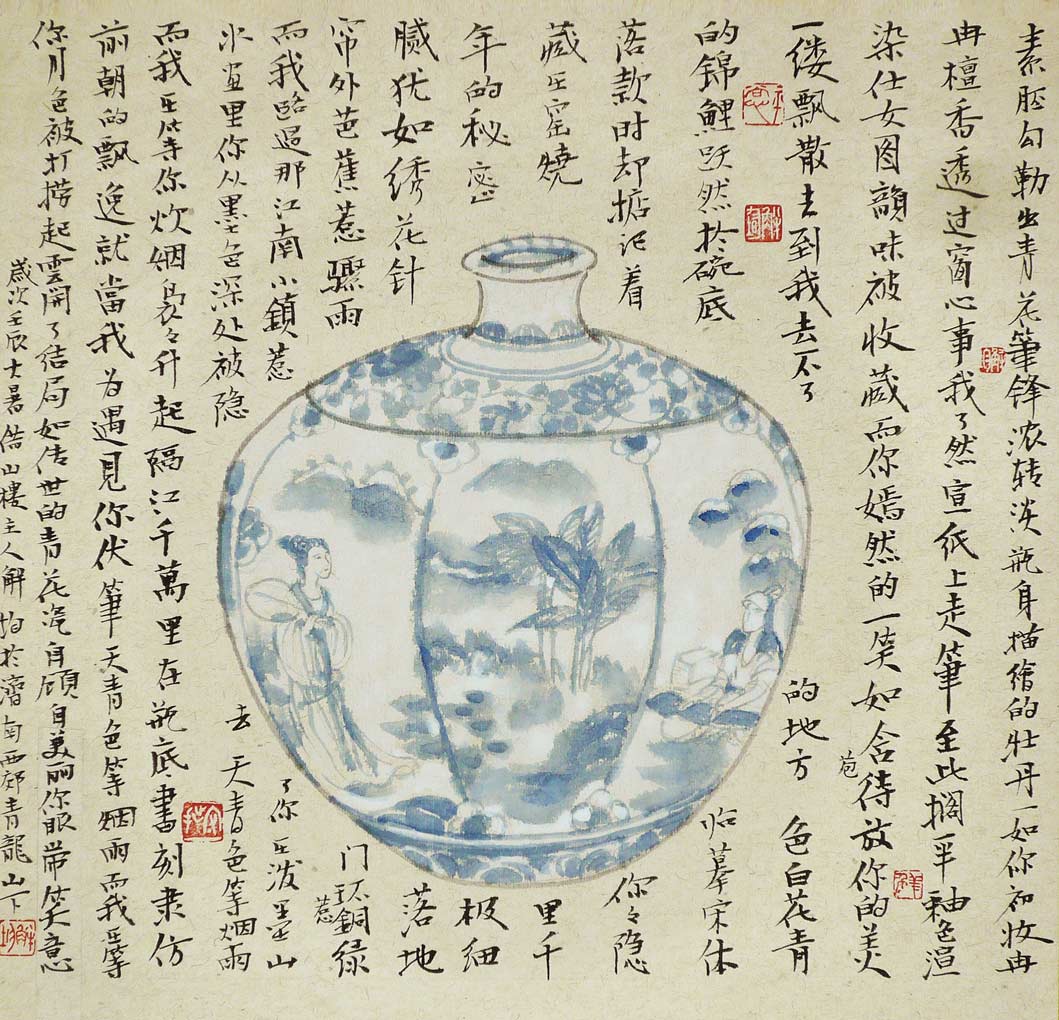 素胚勾勒出青花筆锋浓转淡瓶身描繪的牡丹一如你初妆冉
冉檀香透过窗心事我了然宣纸上走筆至此搁半釉色渲
染仕女图韻味被收藏而你嫣然的一笑如含苞待放你的美
一缕飘散去到我去不了的地方 色白花青
的锦鲤跃然於碗底临摹宋体
落款时却掂记着你々隐
藏在窑烧里千
年的秘密极细
腻犹如绣花针落地
帘外芭蕉惹骤雨门环惹铜绿
而我路过那江南小鎮惹了你在泼墨山
水画里你从墨色深处被隐去 天青色等烟雨
而我在等你炊烟袅々升起隔江千萬里在瓶底書刻隶仿
前朝的飘逸就當我为遇見你伏筆天青色等烟雨而我在等
你月色被打捞起雲開了结局如传世的青花瓷自顧自美丽你眼带笑意
歲次壬辰大暑借山樓主人解均於濟南西郊青龍山下